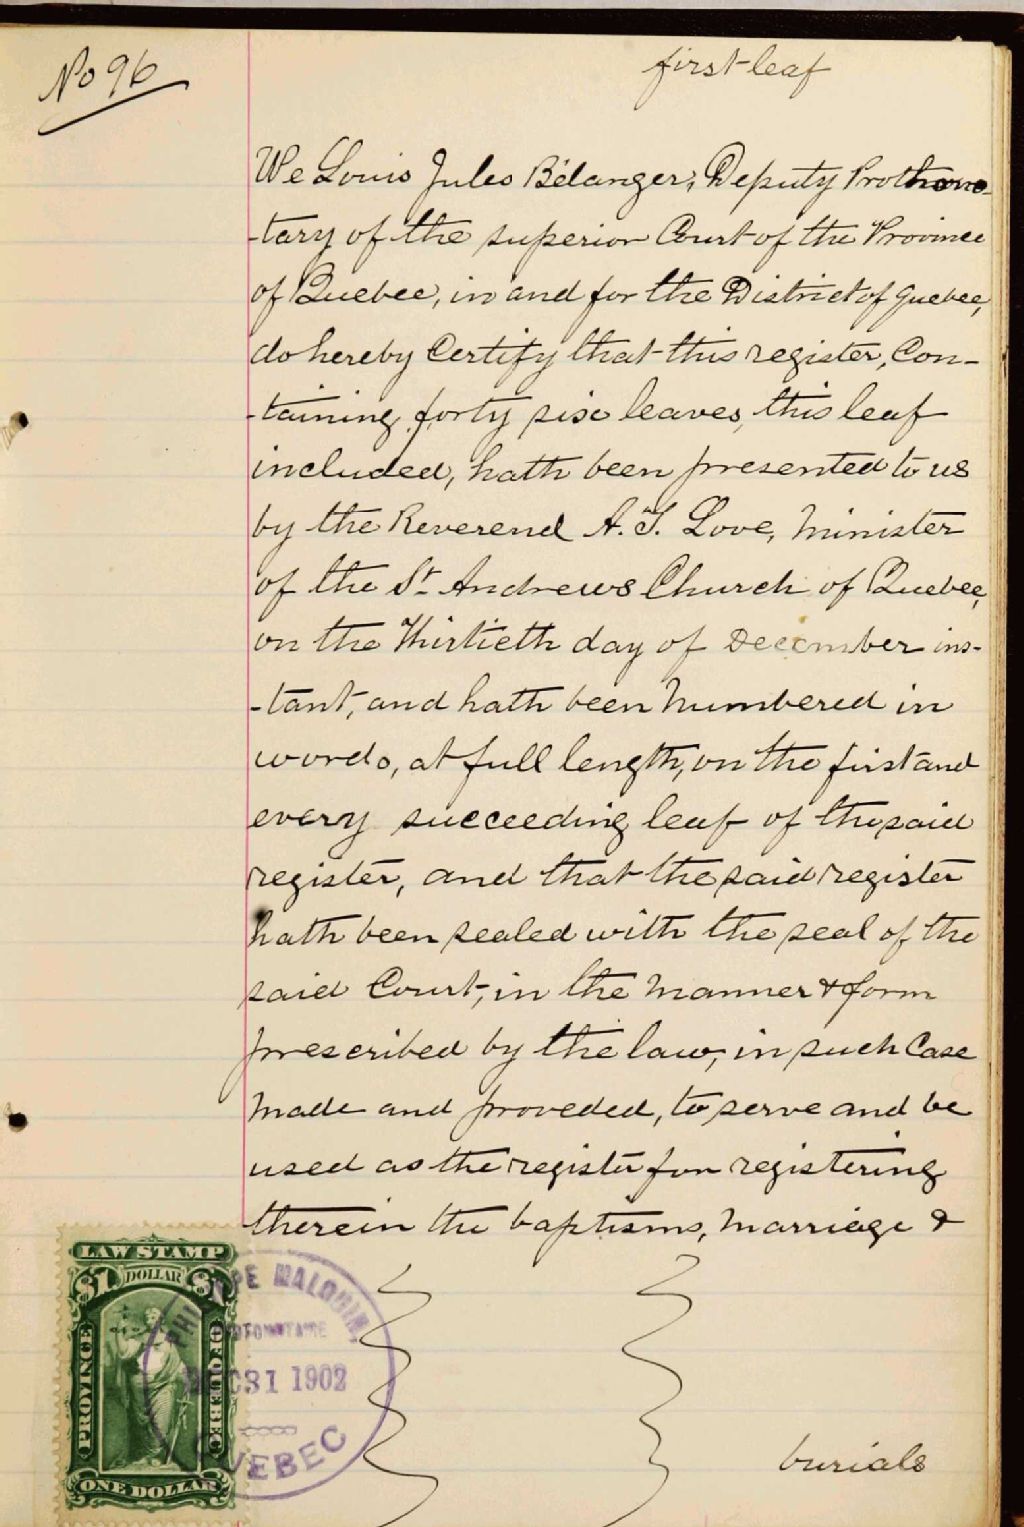 No 96
first leaf
We Louis Jules Bélanger, Deputy Prothono-
-tary of the superior Court of the Province
of Quebec, in and for the District of Quebec,
do hereby Certify that this register, Con-
-taining forty sise leaves, this leaf
included, hath been presented to us
by the Reverend A. T. Love, Minister
of the St Andrews Church of Quebec,
on the Thirtieth day of December ins-
-tant, and hath been Numbered in
words, at full length, on the first and
every succeeding leaf of the said
register, and that the said register
hath been sealed with the seal of the
said Court, in the Manner & form
prescribed by the law, in such Case
Made and proveded, to serve and be
used as the register for registering
therein the baptisms, Marriage &
burials
LAW STAMP
$1 DOLLAR $1
PROVINCE OF QUEBEC
ONE DOLLAR
PHILIPPE MALOUIN,
PROTONOTAIRE
DEC 31 1902
QUEBEC